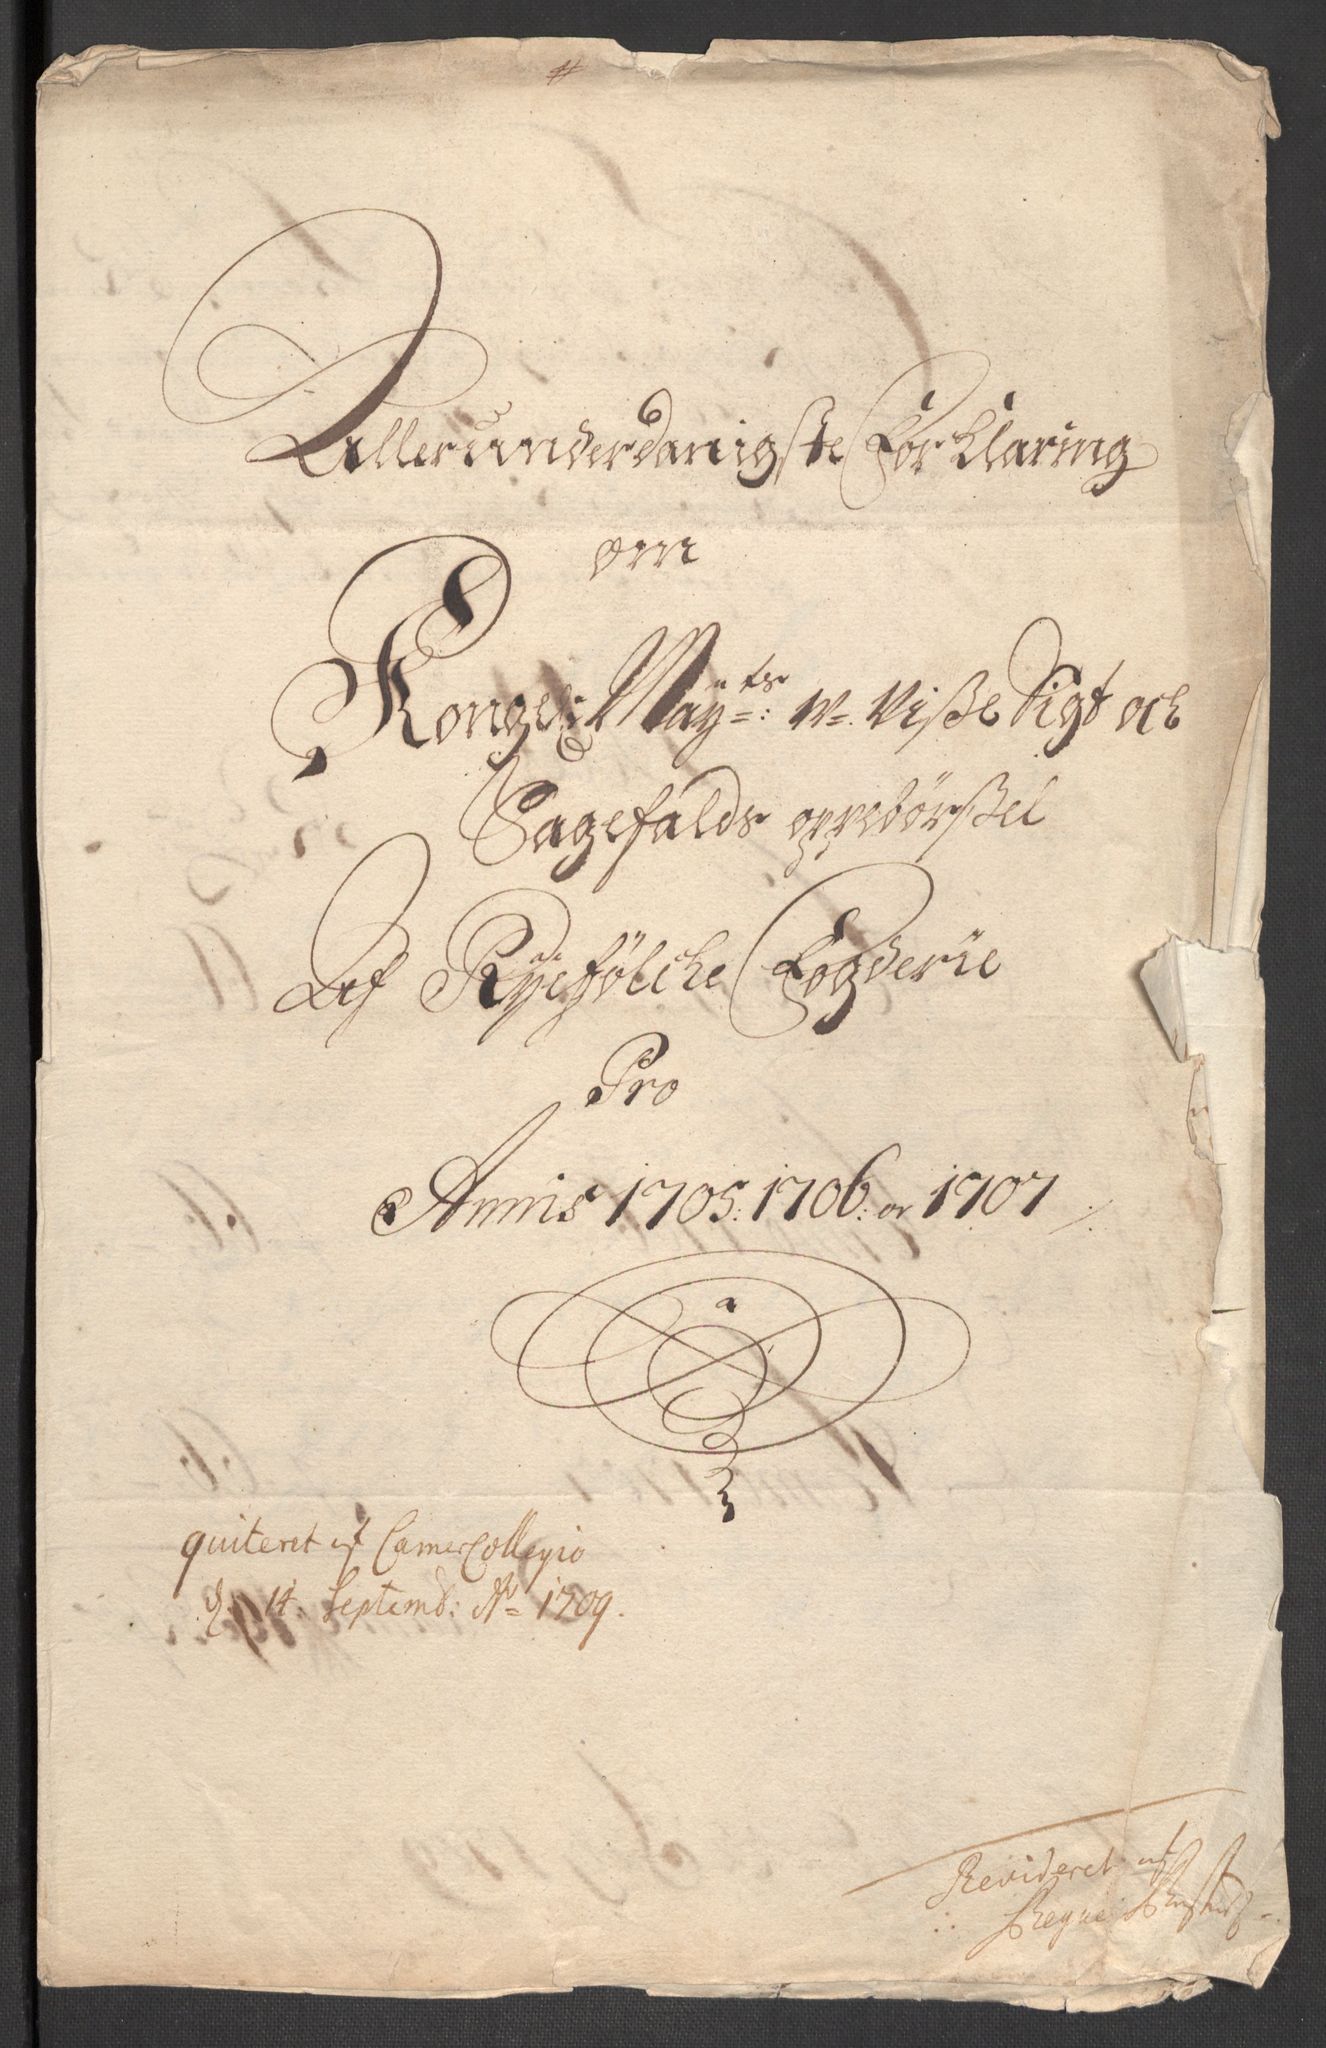 Allerunderdanigste Forklaring
om
Kongel: Mäy:ts: w=Viße Sigt och
Sagefalds oppebörßel
Af Ryefölche Fogderie
Pro
Annis 1705: 1706: or 1707
quiteret af CamerCollegio
d. 14. Septemb: Ao= 1709.
Revideret af